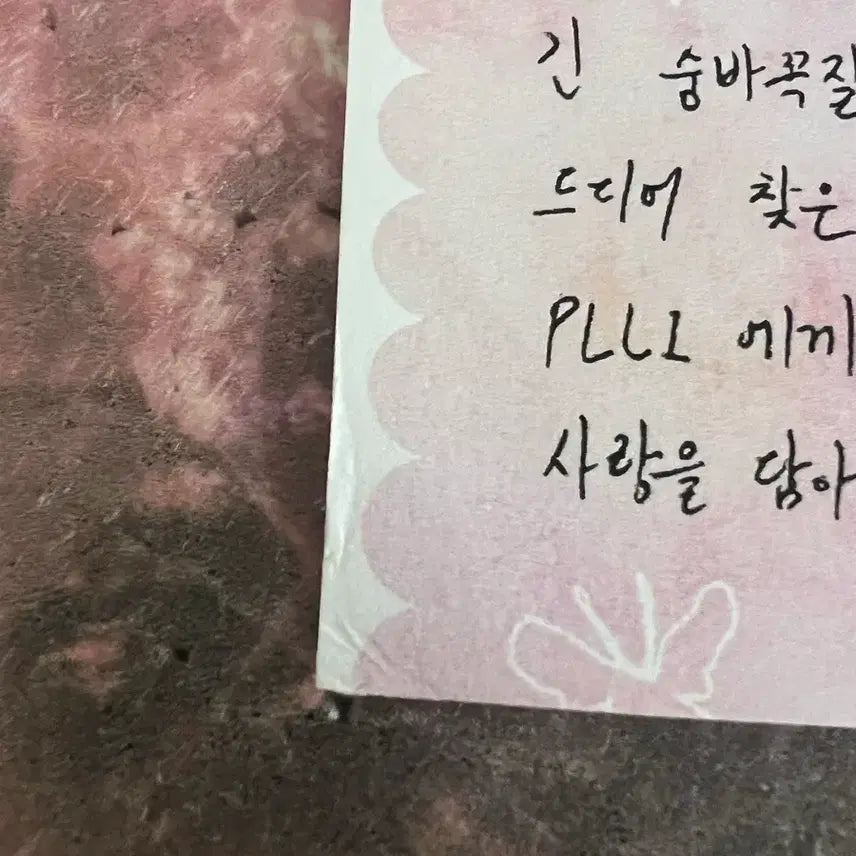 긴 숨바꼭질
드디어 찾은
PLLI 에게
사랑을 담아